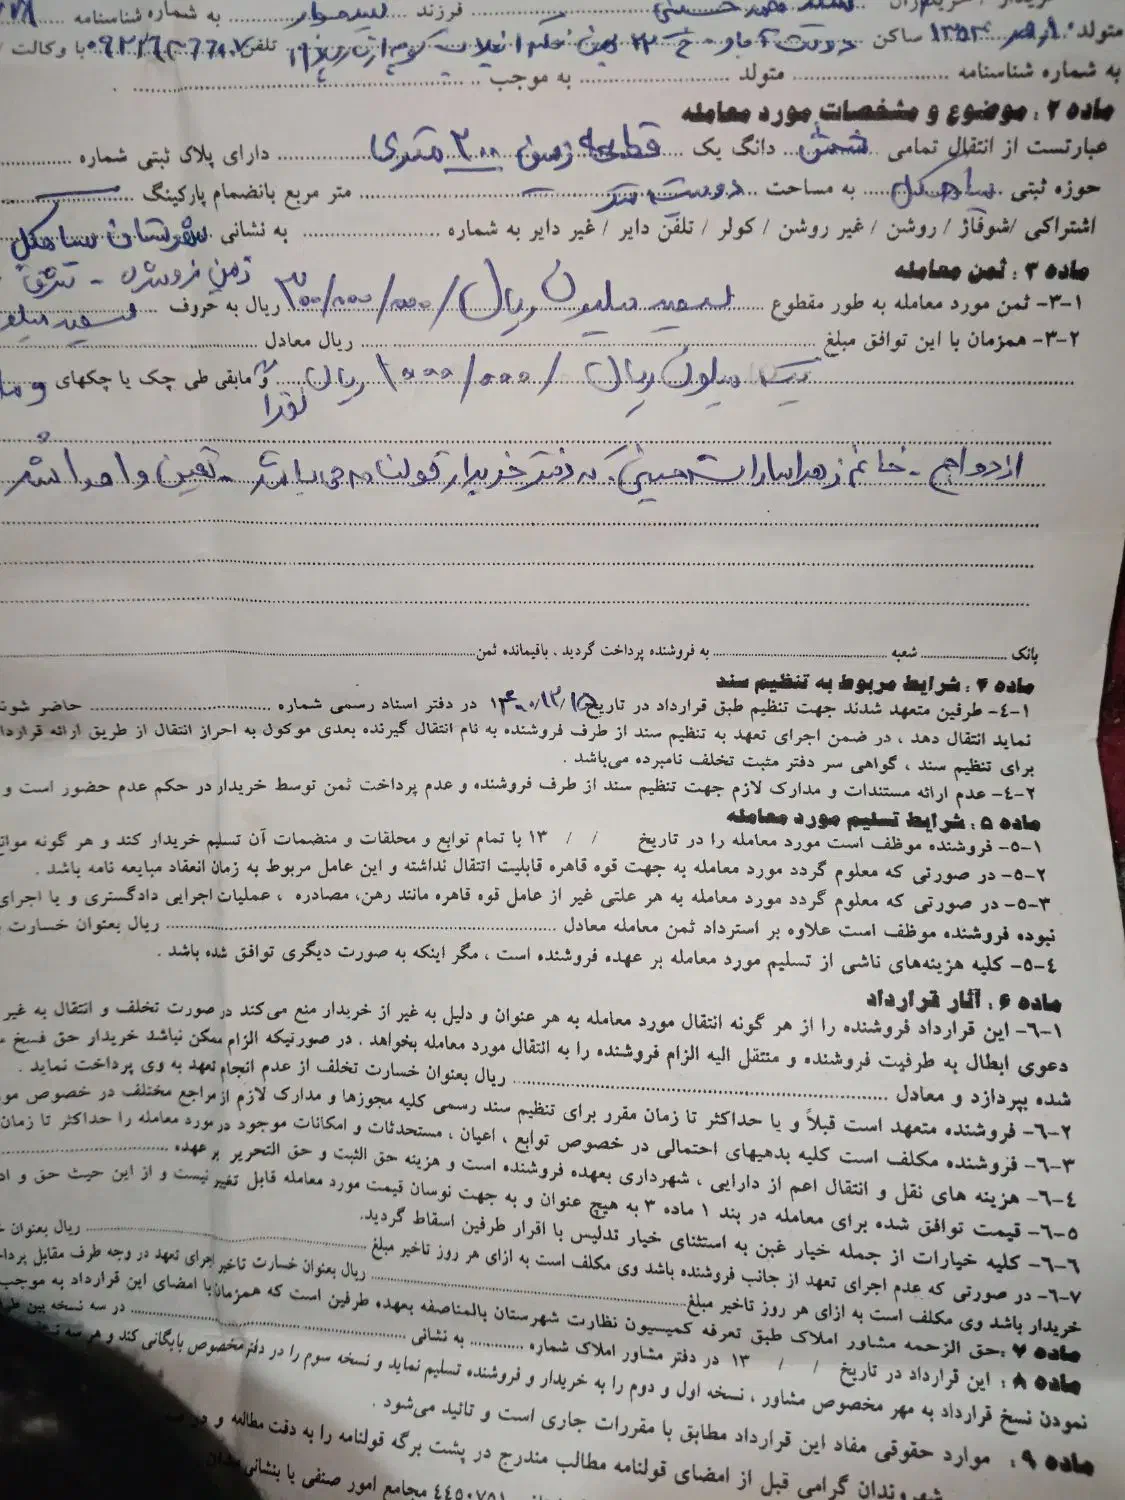 فرزند ... به شماره شناسنامه
متولد ... ۱۳۵۴ ساکن ... تلفن ... با وکالت
به شماره شناسنامه ... متولد ... به موجب
ماده ۲ : موضوع و مشخصات مورد معامله
عبارتست از انتقال تمامی ششش دانگ یک قطعه زمین ۲۰۰ متری دارای پلاک ثبتی شماره
حوزه ثبتی سیاهکل به مساحت دویست متر متر مربع بانضمام پارکینگ
اشتراکی /شوفاژ / روشن / غیر روشن / کولر / تلفن دایر / غیر دایر به شماره ... به نشانی شهرستان سیاهکل
ماده ۳ : ثمن معامله
۳-۱- ثمن مورد معامله به طور مقطوع سیصد میلیون ریال /۳۰۰/۰۰۰/۰۰۰ ریال به حروف
۳-۲- همزمان با این توافق مبلغ ... ریال معادل
یک میلیون ریال /۱۰۰۰/۰۰۰ ریال نقدا و مابقی طی چک یا چکهای
ازدواج - خانم زهرا سادات حسینی که دختر خریدار قولنامه می باشد - تعیین و اهدا شد
بانک ... شعبه ... به فروشنده پرداخت گردید . باقیمانده ثمن
ماده ۴ : شرایط مربوط به تنظیم سند
۴-۱- طرفین متعهد شدند جهت تنظیم طبق قرارداد در تاریخ ... در دفتر اسناد رسمی شماره ... حاضر شوند
نماید انتقال دهد ، در ضمن اجرای تعهد به تنظیم سند از طرف فروشنده به نام انتقال گیرنده بعدی موکول به احراز انتقال از طریق ارائه قرارداد
برای تنظیم سند ، گواهی سر دفتر مثبت تخلف نامبرده می‌باشد .
۴-۲- عدم ارائه مستندات و مدارک لازم جهت تنظیم سند از طرف فروشنده و عدم پرداخت ثمن توسط خریدار در حکم عدم حضور است و
ماده ۵ : شرایط تسلیم مورد معامله
۵-۱- فروشنده موظف است مورد معامله را در تاریخ / / ۱۳ با تمام توابع و محلقات و منضمات آن تسلیم خریدار کند و هر گونه
۵-۲- در صورتی که معلوم گردد مورد معامله به جهت قوه قاهره قابلیت انتقال نداشته و این عامل مربوط به زمان انعقاد مبایعه نامه باشد .
۵-۳- در صورتی که معلوم گردد مورد معامله به هر علتی غیر از عامل قوه قاهره مانند رهن، مصادره ، عملیات اجرایی دادگستری و یا اجرای
نبوده فروشنده موظف است علاوه بر استرداد ثمن معامله معادل ... ریال بعنوان خسارت
۵-۴- کلیه هزینه‌های ناشی از تسلیم مورد معامله بر عهده فروشنده است ، مگر اینکه به صورت دیگری توافق شده باشد .
ماده ۶ : آثار قرارداد
۶-۱- این قرارداد فروشنده را از هر گونه انتقال مورد معامله به هر عنوان و دلیل به غیر از خریدار منع می‌کند در صورت تخلف و انتقال به غیر
دعوی ابطال به طرفیت فروشنده و منتقل الیه الزام فروشنده را به انتقال مورد معامله بخواهد . در صورتیکه الزام ممکن نباشد خریدار حق فسخ
شده بپردازد و معادل ... ریال بعنوان خسارت تخلف از عدم انجام تعهد به وی پرداخت نماید .
۶-۲- فروشنده متعهد است قبلاً و یا حداکثر تا زمان مقرر برای تنظیم سند رسمی کلیه مجوزها و مدارک لازم از مراجع مختلف در خصوص
۶-۳- فروشنده مکلف است کلیه بدهیهای احتمالی در خصوص توابع ، اعیان ، مستحدثات و امکانات موجود در مورد معامله را حداکثر تا زمان
۶-۴- هزینه های نقل و انتقال اعم از دارایی ، شهرداری بعهده فروشنده است و هزینه حق الثبت و حق التحریر بر عهده
۶-۵- قیمت توافق شده برای معامله در بند ۱ ماده ۳ به هیچ عنوان و به جهت نوسان قیمت مورد معامله قابل تغییر نیست و از این حیث حق و
۶-۶- کلیه خیارات از جمله خیار غبن به استثنای خیار تدلیس با اقرار طرفین اسقاط گردید.
۶-۷- در صورتی که عدم اجرای تعهد از جانب فروشنده باشد وی مکلف است به ازای هر روز تاخیر مبلغ ... ریال بعنوان
خریدار باشد وی مکلف است به ازای هر روز تاخیر مبلغ ... ریال بعنوان خسارت تاخیر اجرای تعهد در وجه طرف مقابل
ماده ۷ : حق الزحمه مشاور املاک طبق تعرفه کمیسیون نظارت شهرستان بالمناصفه بعهده طرفین است که همزمان با امضای این قرارداد به موجب
ماده ۸ : این قرارداد در تاریخ / / ۱۳ در دفتر مشاور املاک شماره ... به نشانی ... در سه نسخه بین
نمودن نسخ قرارداد به مهر مخصوص مشاور ، نسخه اول و دوم را به خریدار و فروشنده تسلیم نماید و نسخه سوم را در دفتر مخصوص بایگانی کند و هر سه
ماده ۹ : موارد حقوقی مفاد این قرارداد مطابق با مقررات جاری است و تائید می‌شود .
شهروندان گرامی قبل از امضای قولنامه مطالب مندرج در پشت برگه قولنامه را به دقت مطالعه و
۴۴۵۰۷۵۱ مجامع امور صنفی یا بنشانی